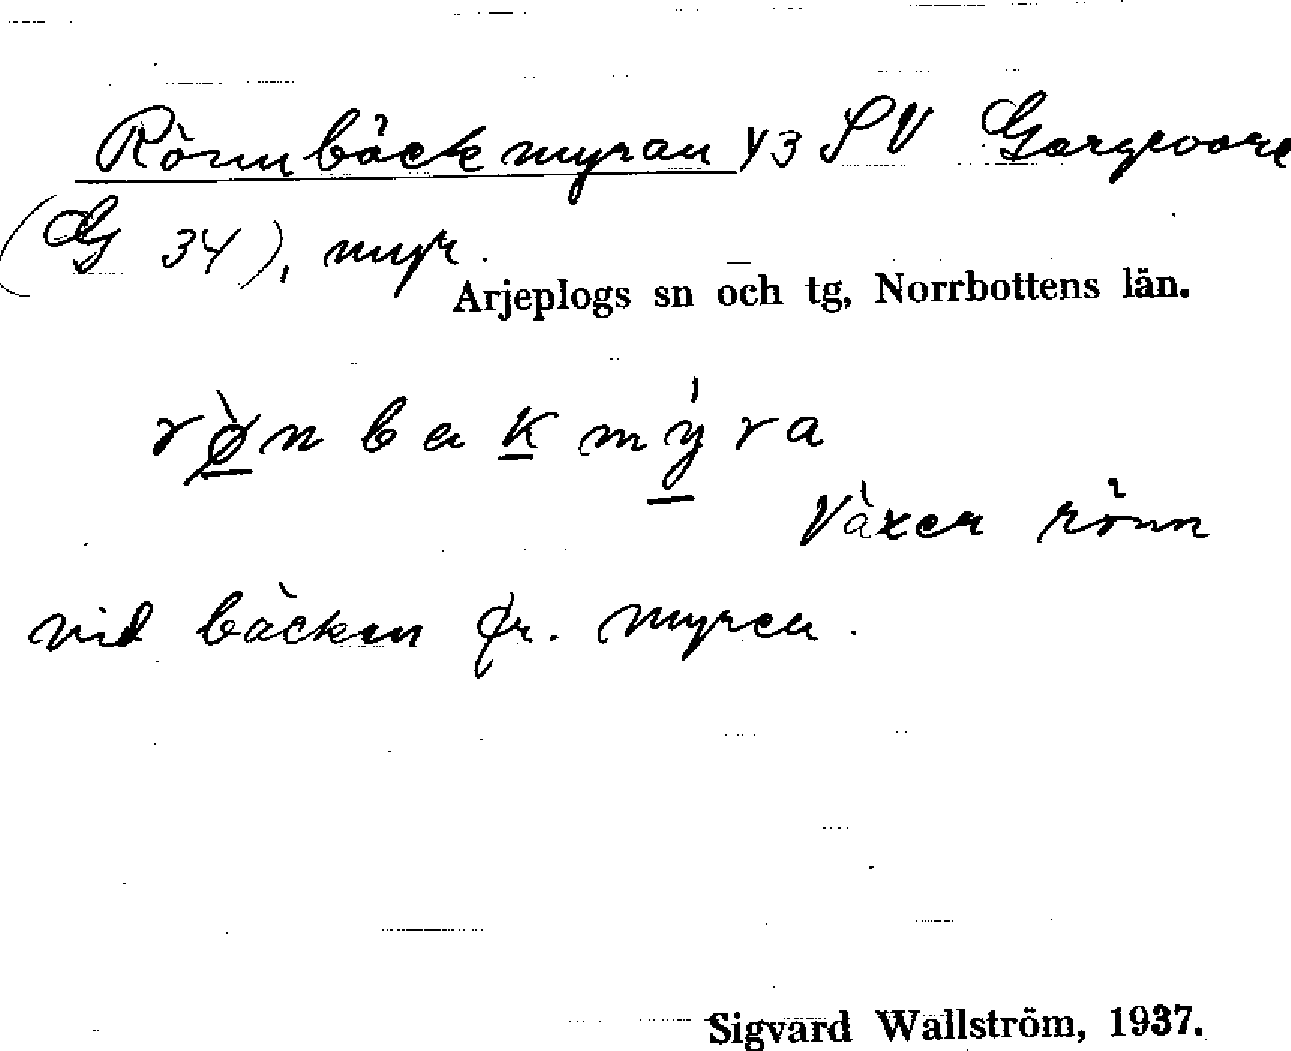 Rönnbäckmyran y3 SV Gargvare
(G 34), myr.
Arjeplogs sn och tg, Norrbottens län.
rø̀nbakmýra
Växer rönn
vid bäcken fr. myren.
Sigvard Wallström, 1937.